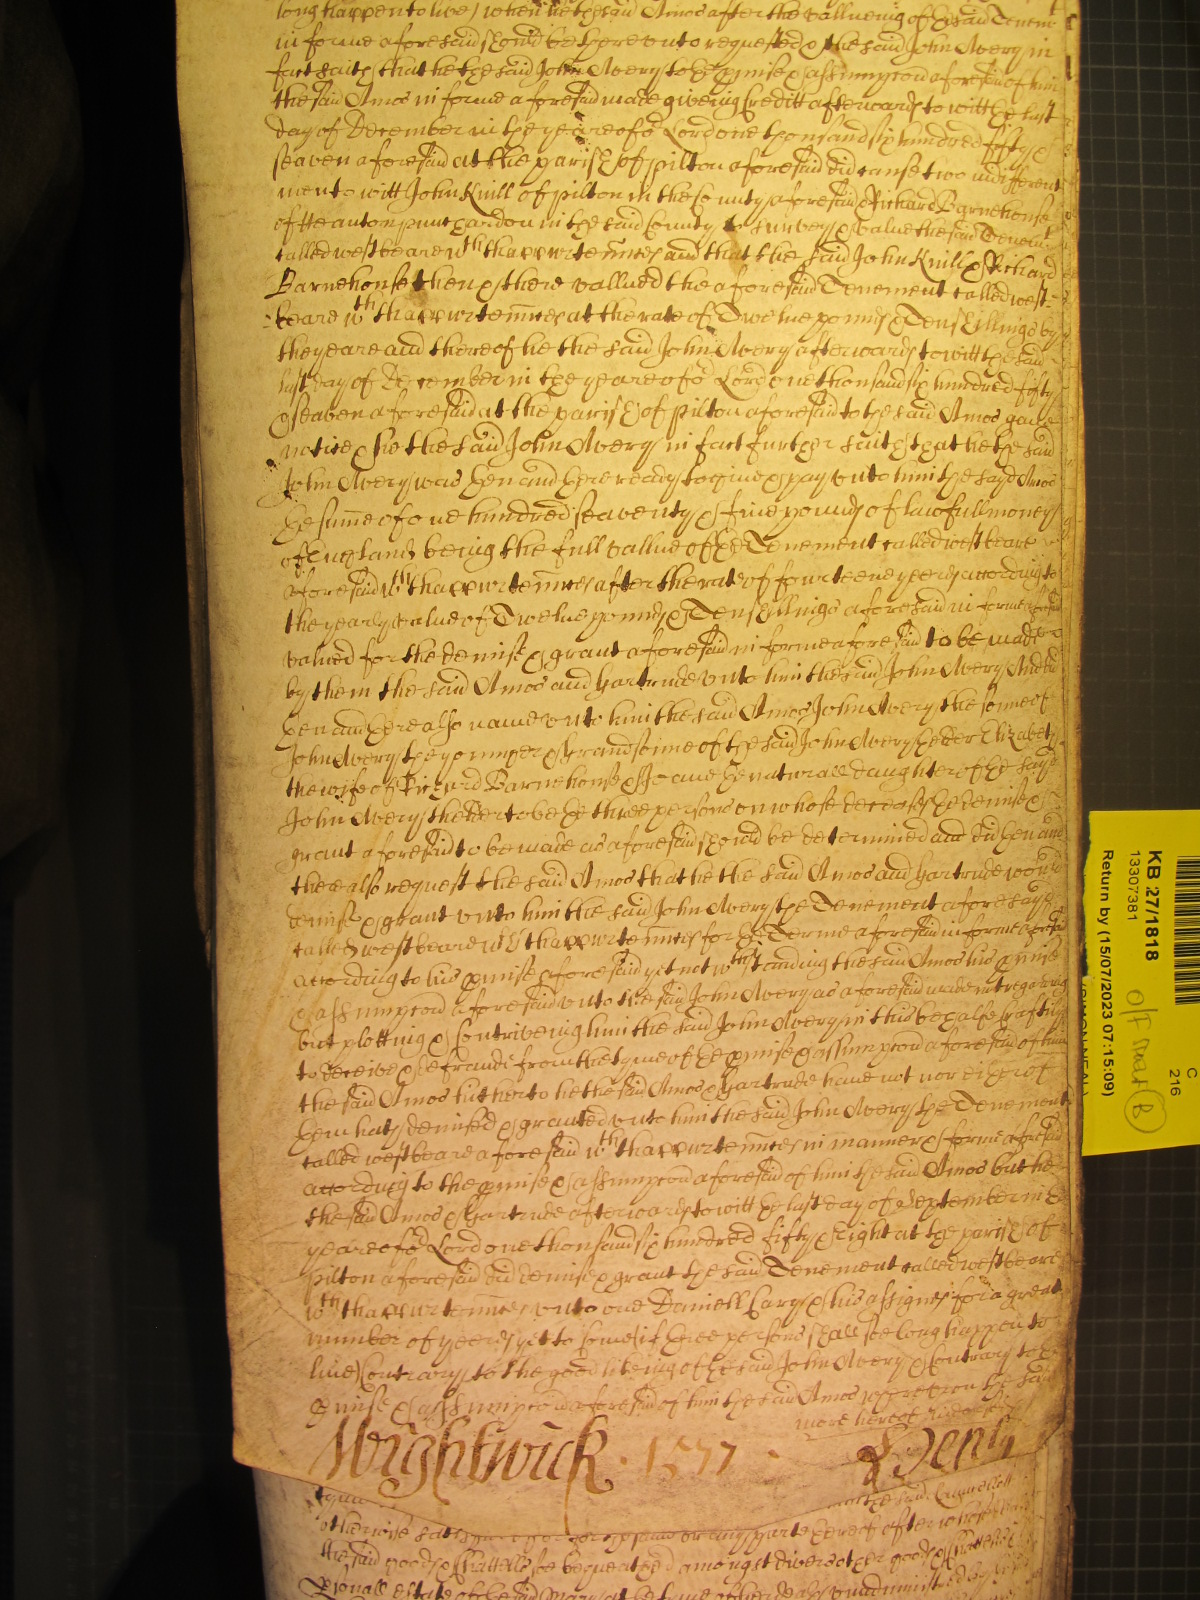 long happen to live) when he the said Amos after the vallueing of the said Tenemt
in forme aforesaid should be thereunto requested & the said John Avery in
fact saith that he the said John Avery to the pmise & assumpcon aforesaid of him
the said Amos in forme aforesaid made giveing Creditt afterwards to witt the last
day of December in the yeare of or Lord one thousand six hundred fifty &
seaven aforesaid at the parish of Pilton aforesaid did cause two indifferent
men to witt John Knill of Pilton in the County aforesaid & Richard Barnehouse
of Heanton punchardon in the said County to survey & value the said Tenemt
called westbeare wth thappurtennces and that the said John Knill & Richard
Barnehouse then & there vallued the aforesaid Tenement called west-
beare wth thappurtennces at the rate of Twelve pounds & Ten Shillings by
the yeare and thereof he the said John Avery afterwards to witt the said
last day of December in the yeare of or Lord one thousand six hundred fifty
& seaven aforesaid at the parish of Pilton aforesaid to the said Amos gave
notice & he the said John Avery in fact further saith that he the said
John Avery was then and there ready to give & pay unto him the sayd Amos
the sume of one hundred seaventy & five pounds of lawfull money
of England being the full vallue of the Tenement called westbeare
aforesaid wth thappurtennces after the rate of fourteene yeeres according to
the yearly value of Twelve pounds & Ten Shillings aforesaid in forme aforesaid
valued for the demise & grant aforesaid in forme aforesaid to be made
by them the said Amos and Hartrude unto him the said John Avery And did
then and there also name unto him the said Amos John Avery the sonne of
John Avery the younger & Grandsonne of the said John Avery the elder Elizabeth
the wife of Richard Barnehouse & Joane the naturall daughter of the sayd
John Avery the elder to be the three persons on whose deceases the demise &
grant aforesaid to be made as aforesaid should be determined and did then and
there also request the said Amos that he the said Amos and Hartrude would
demise & grant unto him the said John Avery the Tenement aforesayd
called westbeare wth thappurtennces for the Terme aforesaid in forme aforesaid
according to his pmise aforesaid yet notwthstanding the said Amos his pmise
& assumpcon aforesaid unto the said John Avery as aforesaid made not regarding
but plotting & Contriveing him the said John Avery in this behalfe craftily
to deceive & defraude from the tyme of the pmise & assumpcon aforesaid of him
the said Amos hitherto he the said Amos & Hartrude have not nor either of
them hath demised & granted unto him the said John Avery the Tenement
called westbeare aforesaid wth thappurtennces in manner & forme aforesaid
according to the pmise & assumpcon aforesaid of him the said Amos but he
the said Amos & Hartrude afterwards to witt the last day of September in the
yeare of or Lord one thousand six hundred fifty & Eight at the parish of
Pilton aforesaid did demise & grant the said Tenement called westbeare
wth thappurtennces unto one Daniell Cary & his assignes for a great
number of yeeres yet to come (if three persons shall soe long happen to
live) Contrary to the good likeing of the said John Avery & Contrary to the
pmise & assumpcon aforesaid of him the said Amos
more hereof
Wightwick · 1577 ·
the said
otherwise part thereof after
the said goods & Chattells soe bequeathed amongst divers other goods & Chattells
psonall estate of the said Mary at the tyme of her death unadministred
KB 27/1818
13307381
Return by (15/07/2023 07:15:09)
C
216
B